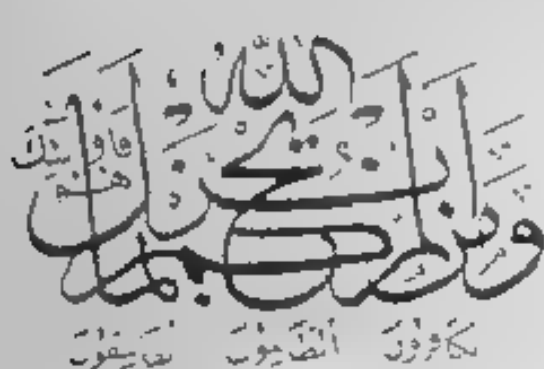 ومن لم يحكم بما أنزل الله فأولئك هم
الكافرون الظالمون الفاسقون